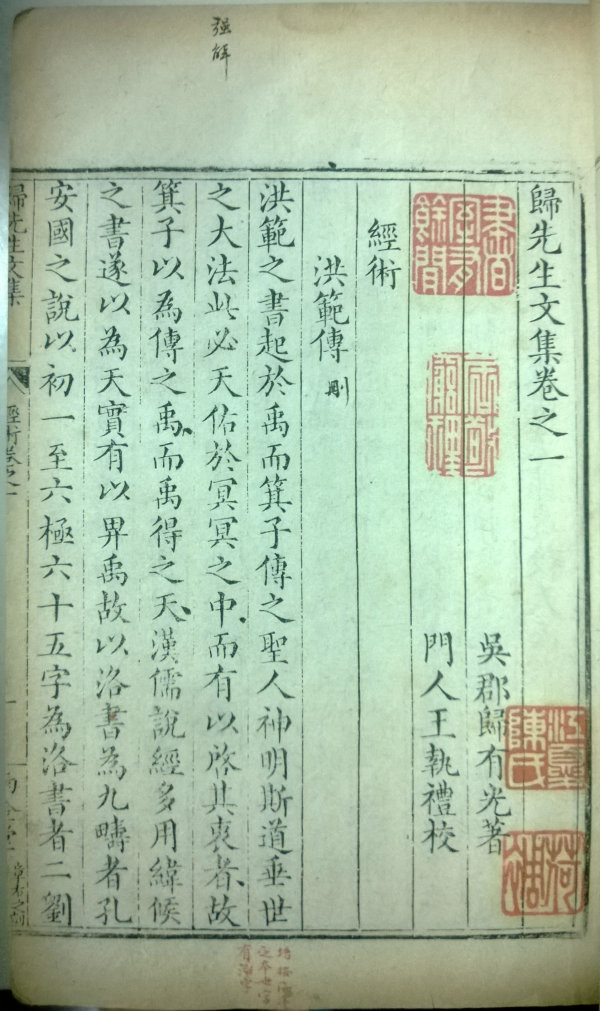 歸先生文集卷之一
吳郡歸有光著
門人王執禮校
經術
洪範傳
洪範之書起於禹而箕子傳之聖人神明斯道垂世
之大法此必天佑於冥冥之中而有以啓其衷者故
箕子以為傳之禹而禹得之天漢儒說經多用緯候
之書遂以為天實有以畀禹故以洛書為九疇者孔
安國之說以初一至六極六十五字為洛書者二劉
歸先生文集
強解
江夏
陳氏